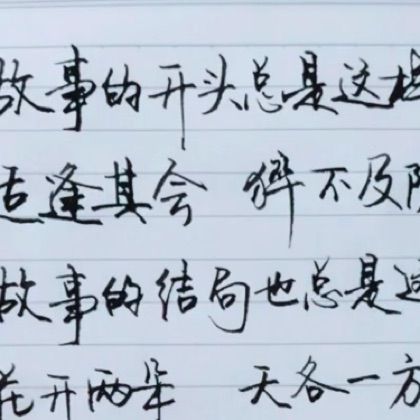 故事的开头总是这样
适逢其会 猝不及防
故事的结局也总是这
花开两朵 天各一方